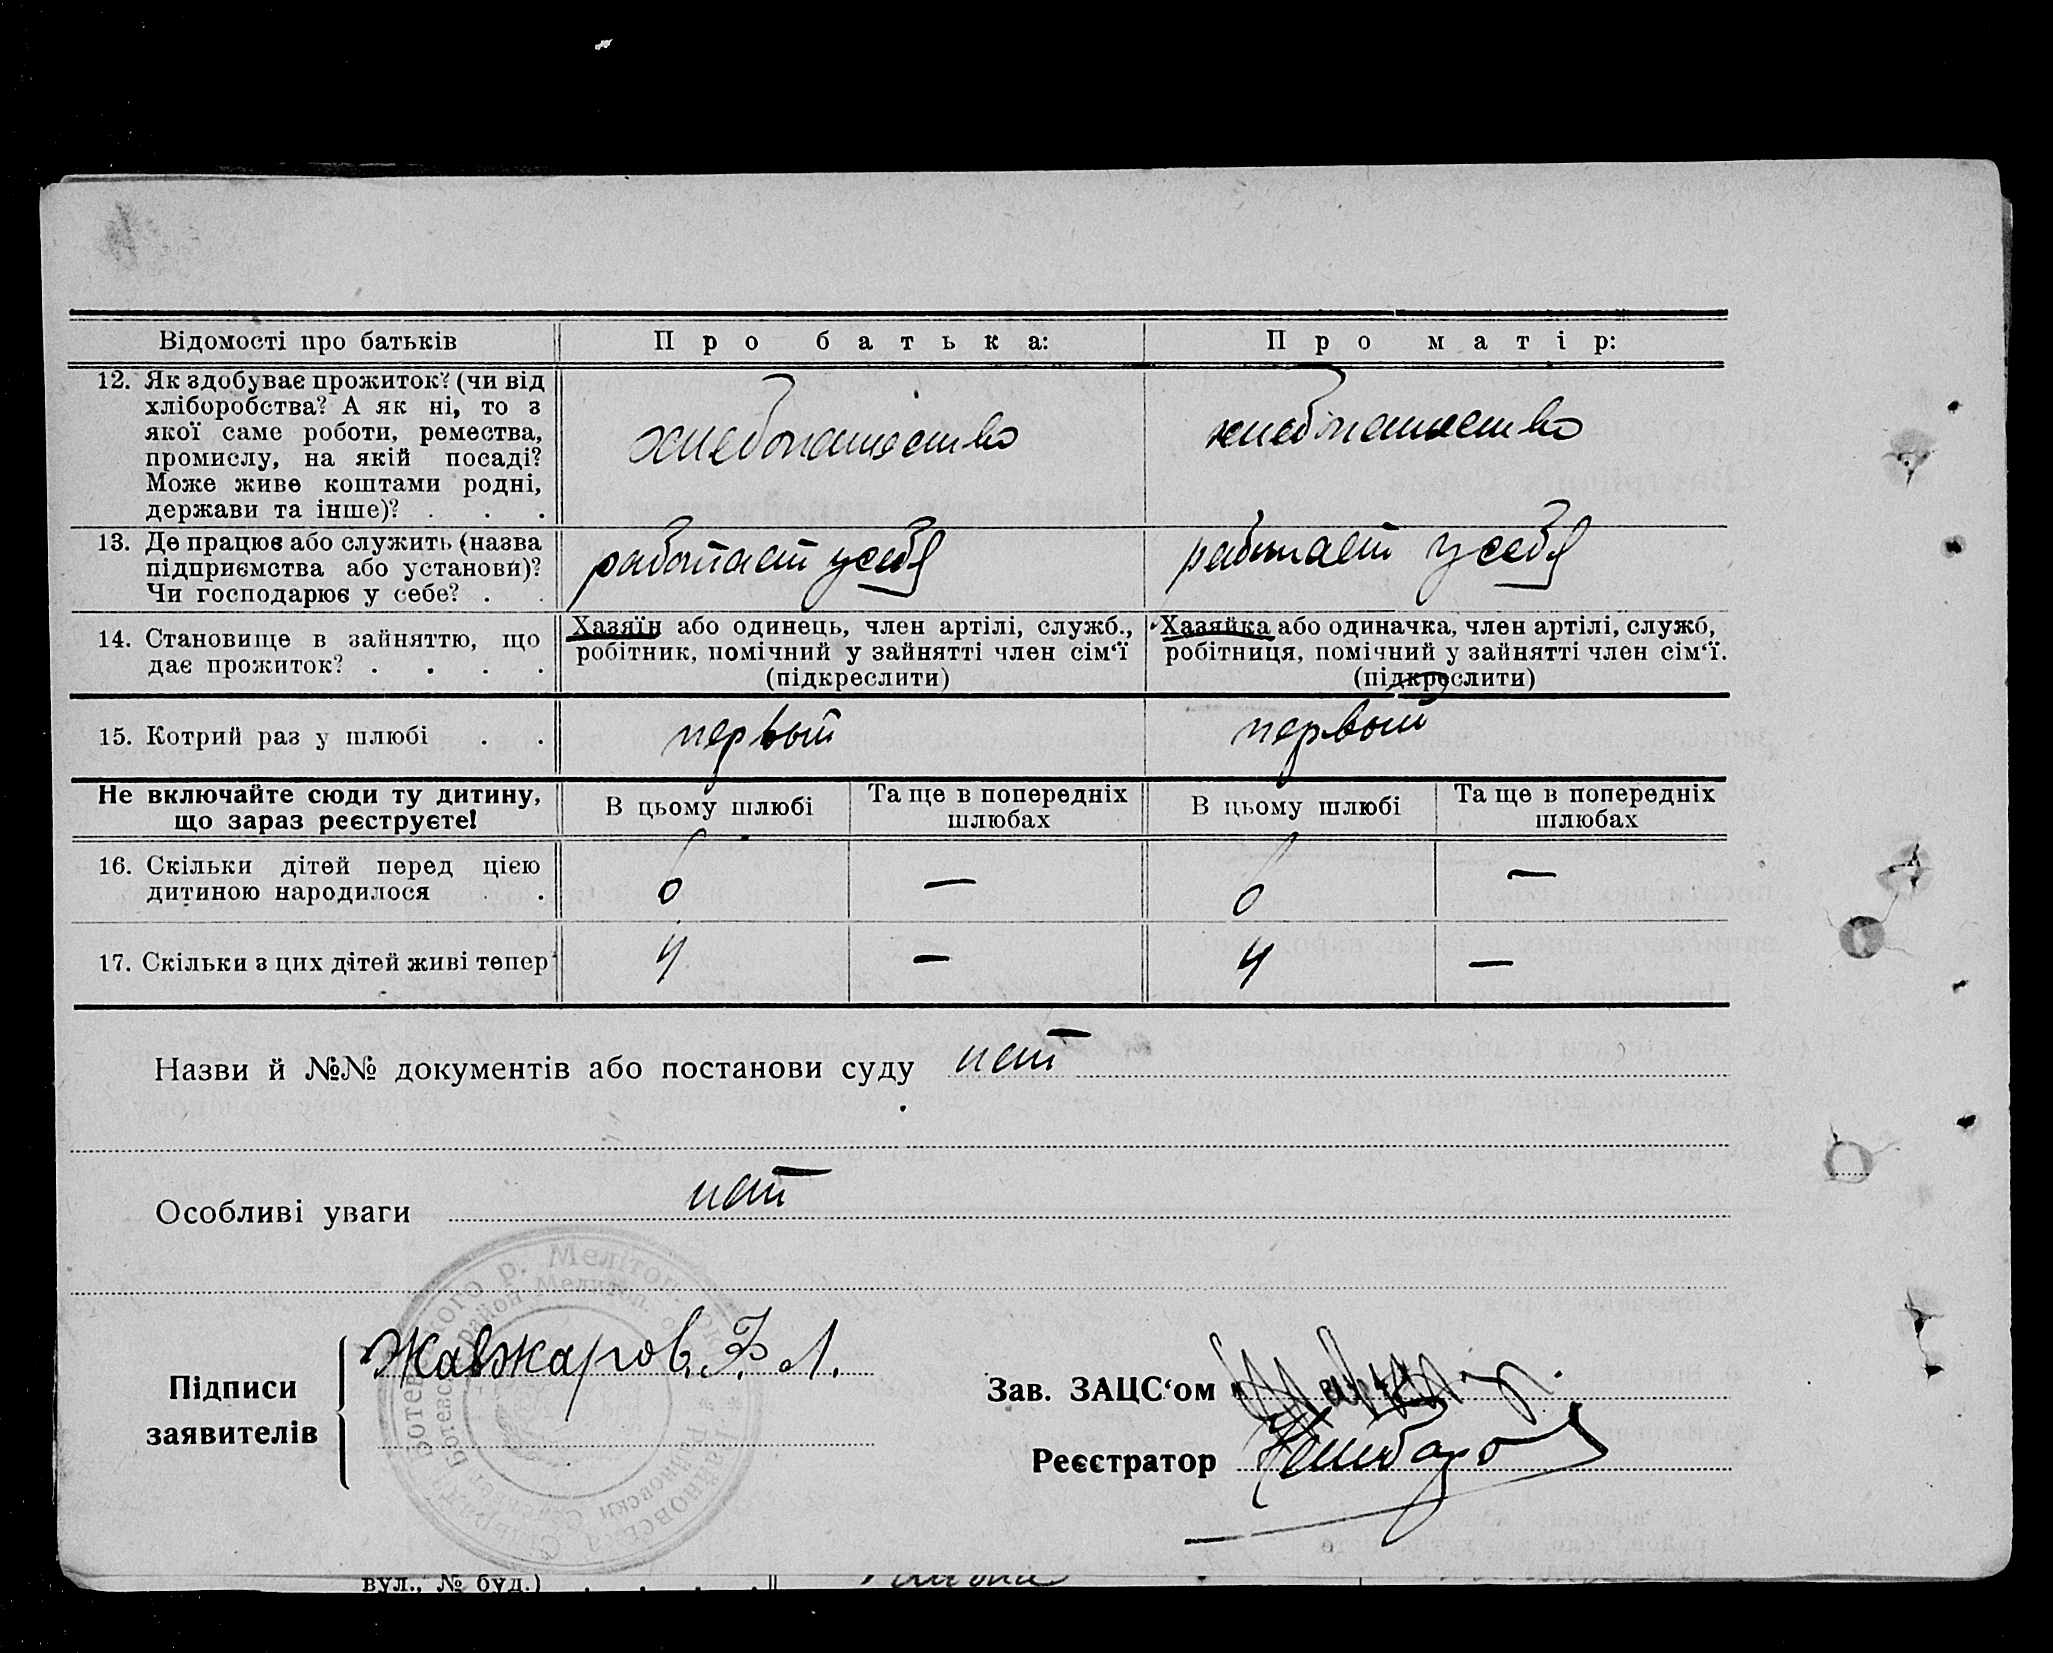 Відомості про батьків Про батька: Про матір:
12. Як здобуває прожиток? (чи від
хліборобства? А як ні, то з
якої саме роботи, ремества,
промислу, на якій посаді?
Може живе коштами родні,
держави та інше)? . . .
хлебопашество хлебопашество
13. Де працює або служить (назва
підприємства або установи)?
Чи господарює у себе? . .
работает у себя работает у себя
14. Становище в зайняттю, що
дає прожиток? . . . .
Хазяїн або одинець, член артілі, служб.,
робітник, помічний у зайнятті член сім'ї
(підкреслити)
Хазяйка або одиначка, член артілі, служб,
робітниця, помічний у зайнятті член сім'ї.
(підкреслити)
15. Котрий раз у шлюбі . . первый первый
Не включайте сюди ту дитину,
що зараз реєструєте!
В цьому шлюбі Та ще в попередніх
шлюбах
В цьому шлюбі Та ще в попередніх
шлюбах
16. Скільки дітей перед цією
дитиною народилося . .
6 — 6 —
17. Скільки з цих дітей живі тепер 4 — 4 —
Назви й №№ документів або постанови суду нет
Особливі уваги нет
Підписи
заявителів
Жавжаров. Ф. Л.
Зав. ЗАЦС'ом
Реєстратор
вул., № буд.) . . . .